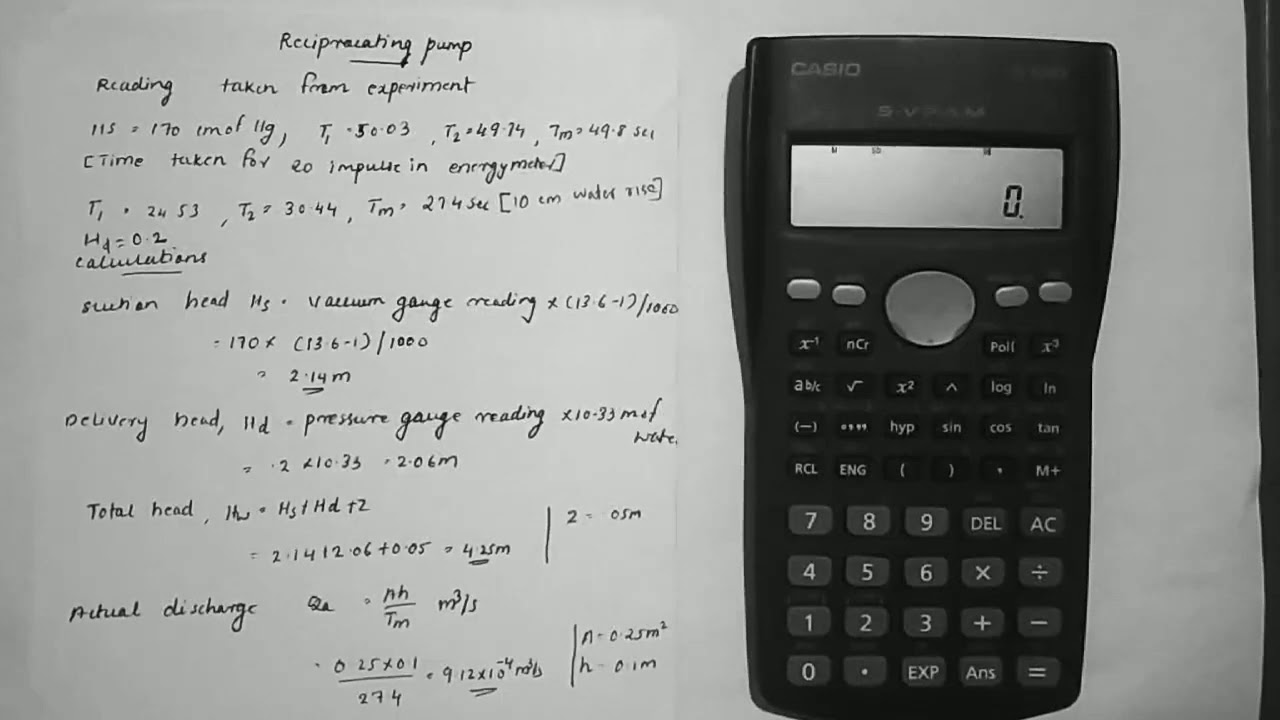 Reciprocating pump
Reading taken from experiment
HS = 170 mm of Hg, T1 = 50.03, T2 = 49.74, Tm = 49.8 sec
[Time taken for 20 impulse in energy meter]
T1 = 24.53, T2 = 30.44, Tm = 27.4 sec [10 cm water rise]
Hd = 0.2
Calculations
Suction head Hs = Vacuum gauge reading × (13.6-1)/1000
= 170 × (13.6-1)/1000
= 2.14 m
Delivery head, Hd = pressure gauge reading × 10.33 m of
water
= .2 × 10.33 = 2.06 m
Total head, Hw = Hs + Hd + Z
Z = .05m
= 2.14 + 2.06 + 0.05 = 4.25m
Actual discharge Qa = Ah/Tm m³/s
A = 0.25m²
h = 0.1m
= 0.25 × 0.1/27.4 = 9.12 × 10⁻⁴ m³/s
CASIO
S-V.P.A.M.
M SD
0.
x⁻¹ nCr Pol( x³
ab/c √ x² ^ log ln
(−) °'" hyp sin cos tan
RCL ENG ( ) , M+
7 8 9 DEL AC
4 5 6 × ÷
1 2 3 + −
0 . EXP Ans =